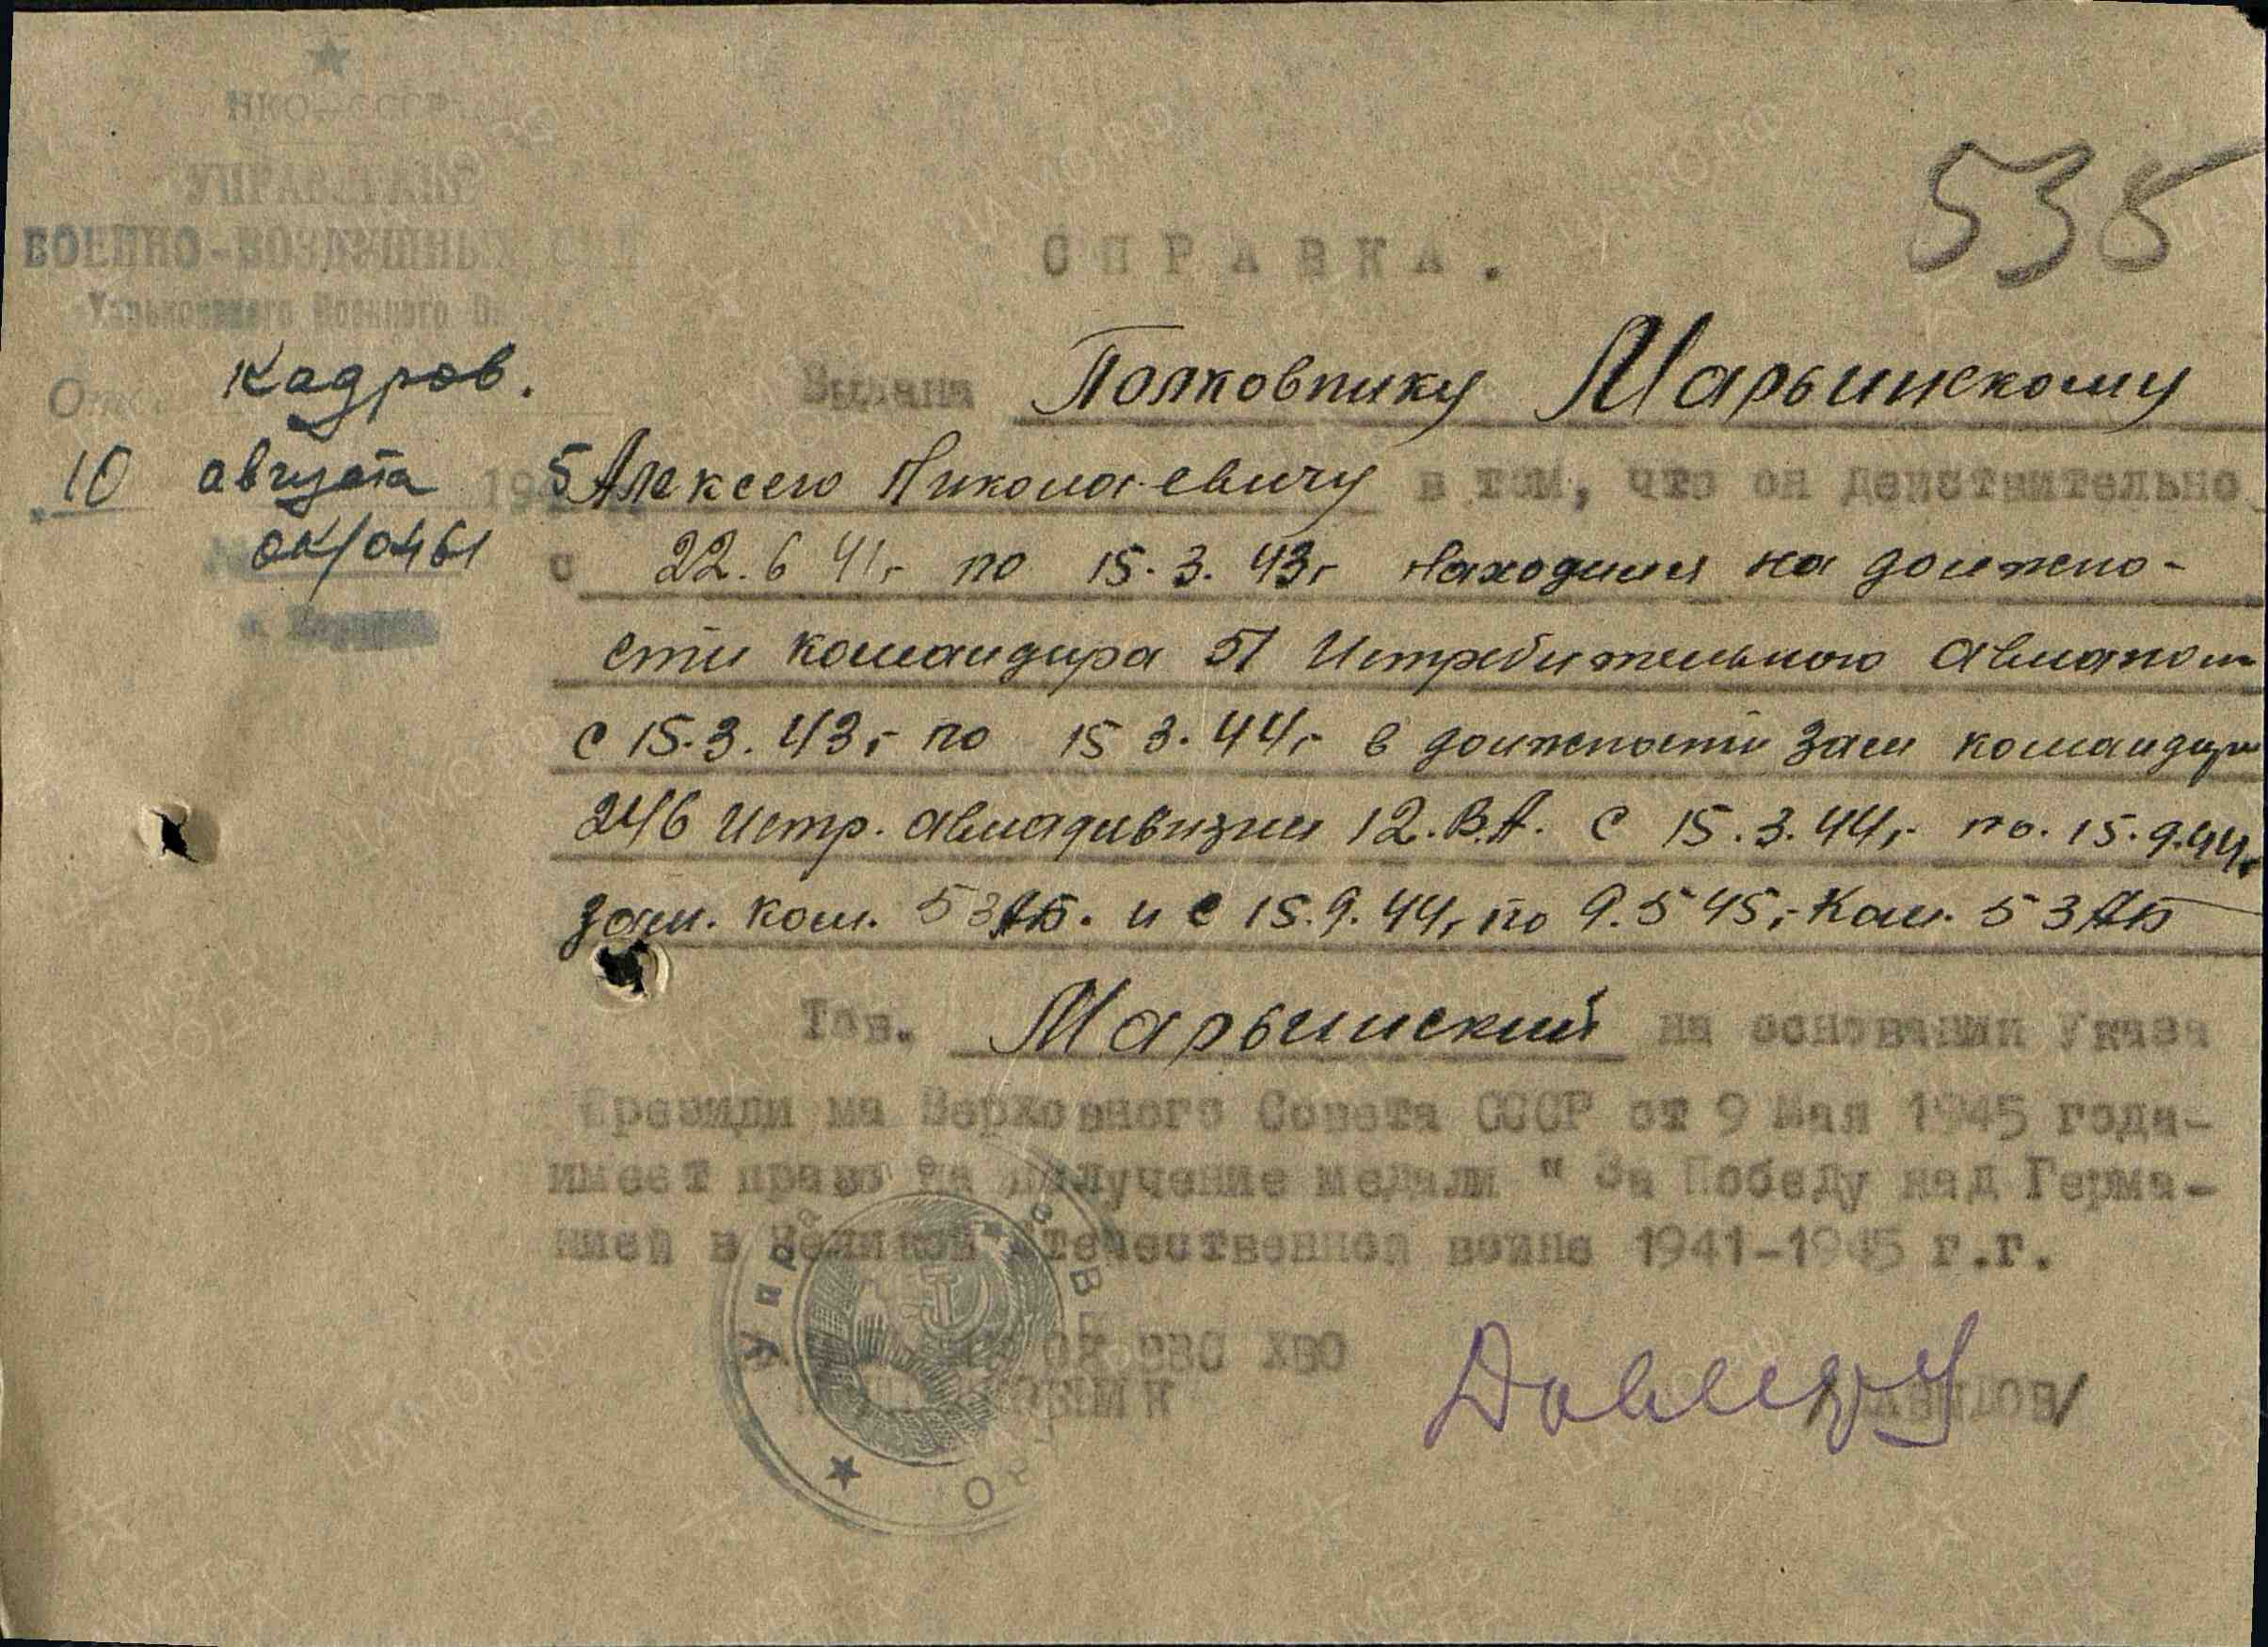 НКО-СССР
УПРАВЛЕНИЕ
ВОЕННО-ВОЗДУШНЫХ СИЛ
Харьковского Военного
535
СПРАВКА.
Кадров.
10 августа 1945
ок/0461
г. Харьков
Выдана Полковнику Марьинскому
Алексею Николаевичу в том, что он действительно
с 22.6 41г по 15.3.43г находился на должно-
сти командира 51 Истребительного авиапол
с 15.3.43г по 15 3.44г в должности зам командира
246 истр. авиадивизии 12.В.А. с 15.3.44г по. 15.9.44г.
зам. ком. 53АБ. и с 15.9.44г по 9.5 45г Ком. 53АБ
Тов. Марьинский на основании Указа
Президи ма Верховного Совета СССР от 9 Мая 1945 года-
имеет право на получение медали " За Победу над Герма-
нией в Великой Отечественной войне 1941-1945 г.г.
ОК ВВС ХВО